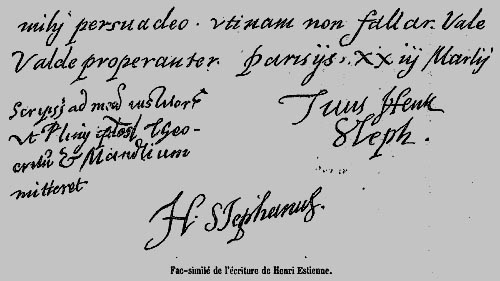 mihj persuadeo. vtinam non fallar. Vale
Valde properanter. parisijs, XX iij Martij
Scripsj ad
Vt Plinij Theo-
& Mandlium
mitteret
Tuus Henr
Steph.
H. Stephanus.
Fac-similé de l'écriture de Henri Estienne.